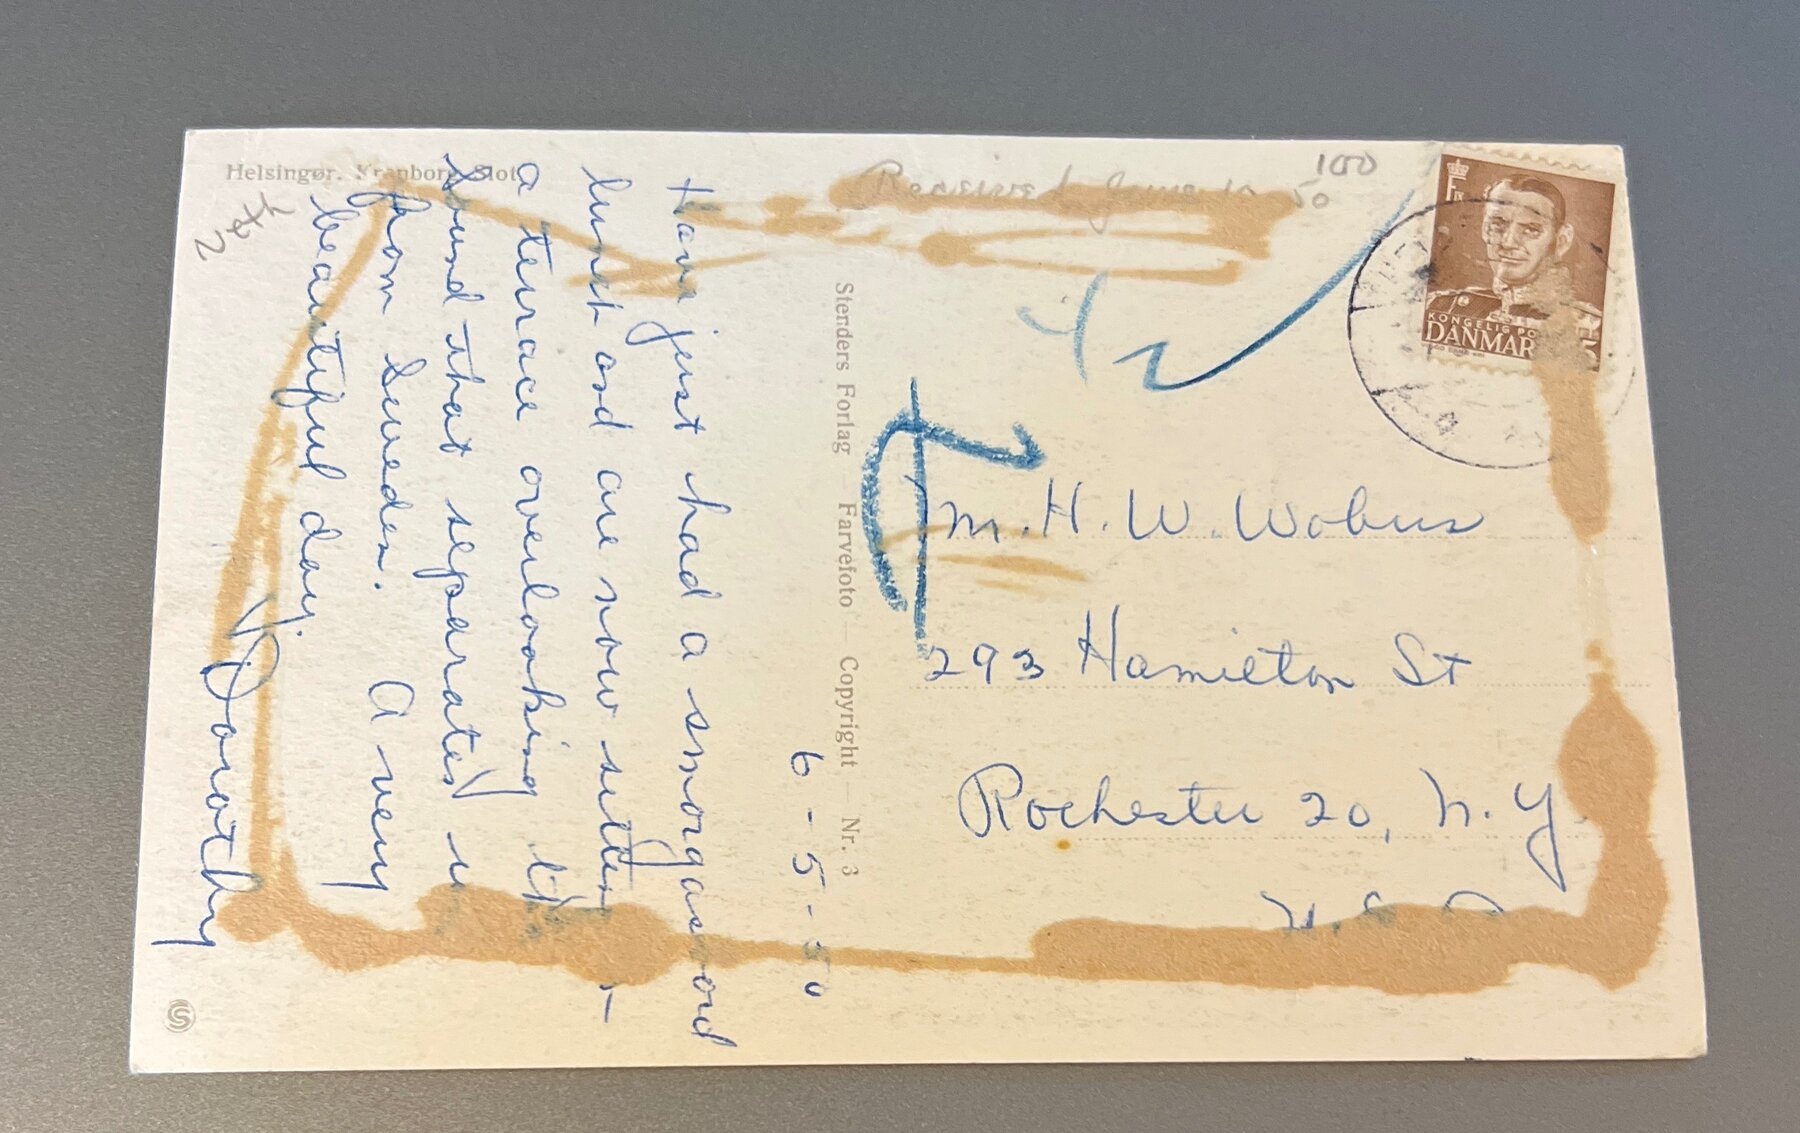 Helsingør. Kronborg Slot
Veth
Received June 12 50
100
KONGELIG
DANMAR
6-5-50
Have just had a smorgasord
lunch and are now sitting
a terrace overlooking th
sound that separates u
from Sweden. A very
beautiful day.
Dorothy
Stenders Forlag — Farvefoto — Copyright — Nr. 3
M. H. W. Wobus
293 Hamilton St
Rochester 20, N.Y.
U.S.A